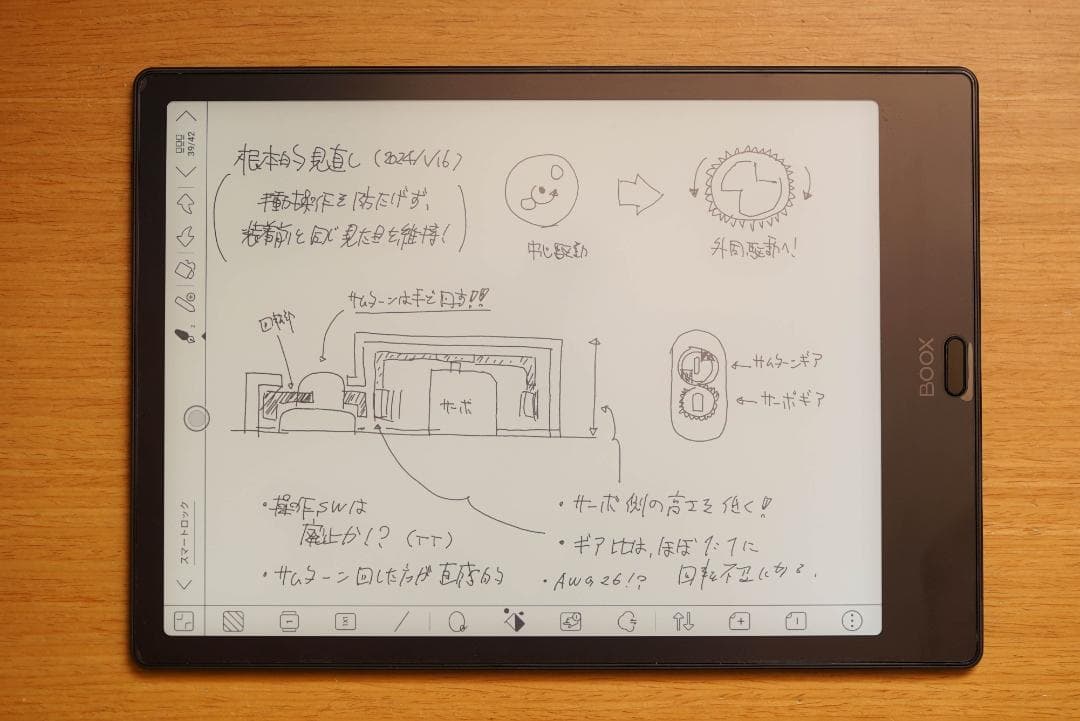 根本的見直し (2024/1/16)
手動操作を妨たげず、
装着前と同じ見た目を維持!
中心駆動
外周駆動へ!
サムターンは手で回す!!
回転
サーボ
サムターンギア
サーボギア
・操作SWは
廃止か!? (TT)
・サムターン回した方が直感的
・サーボ側の高さを低く!
・ギア比は、ほぼ1:1に
・AWG26!?
回転不足になる.
39/42
スマートロック
BOOX